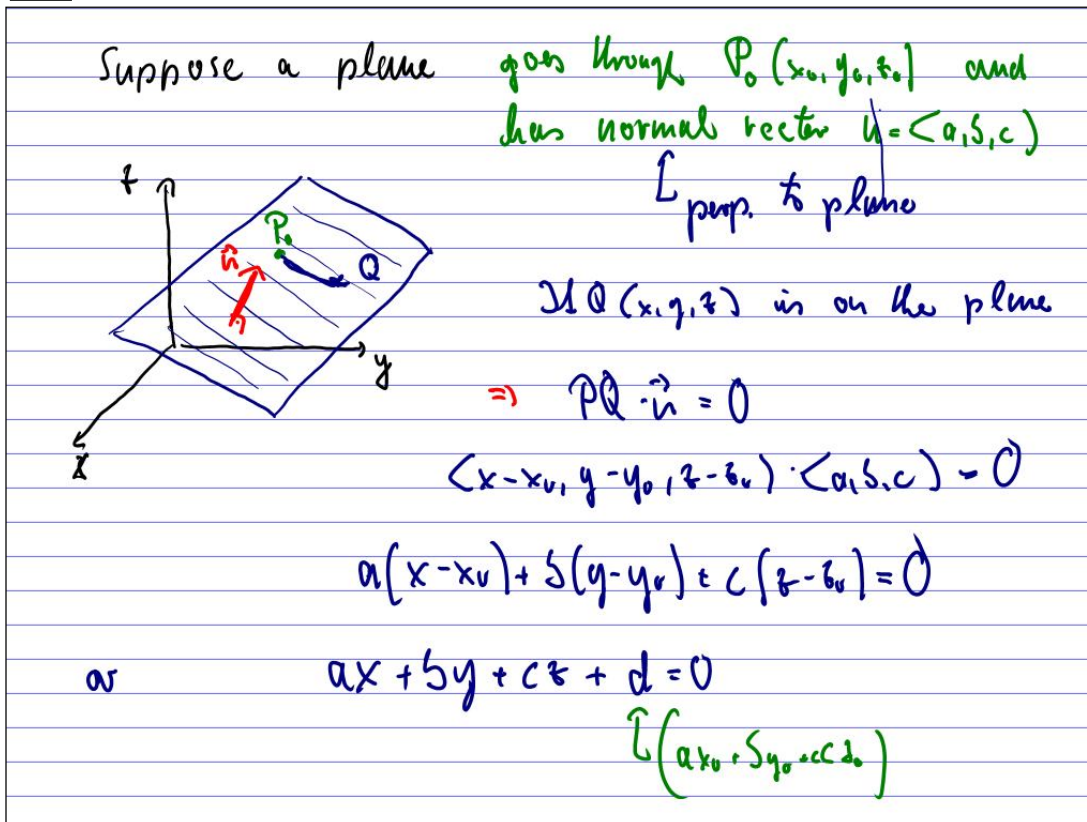 Suppose a plane goes through P₀(x₀, y₀, z₀) and
has normal vector n = <a, b, c>
perp. to plane
z
P₀
n⃗
Q
y
x
If Q (x, y, z) is on the plane
⇒ PQ · n⃗ = 0
<x - x₀, y - y₀, z - z₀> · <a, b, c> = 0
a(x - x₀) + b(y - y₀) + c(z - z₀) = 0
or ax + by + cz + d = 0